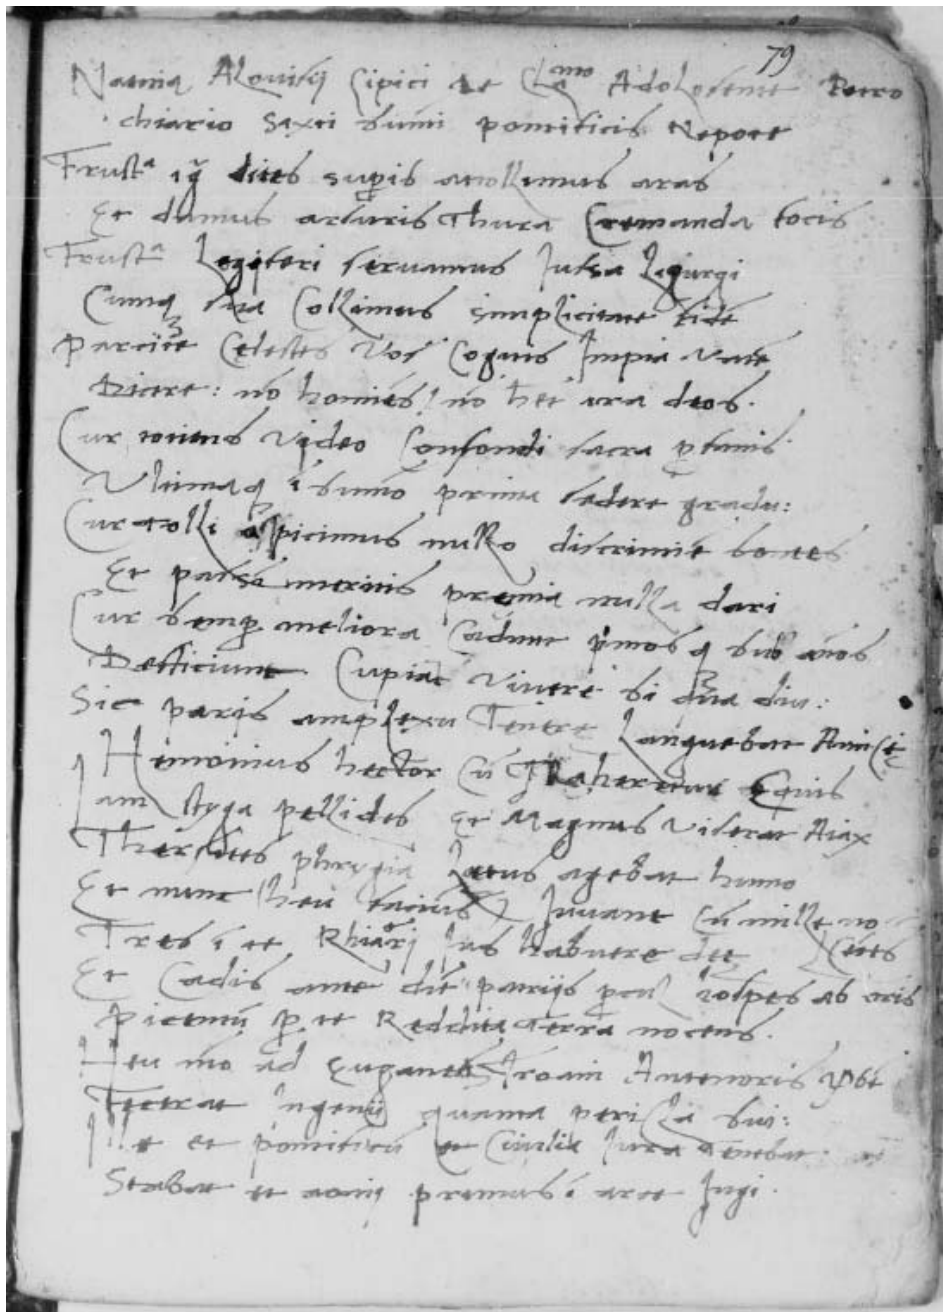 79
Naenia Alouisij Cipici de Cl.mo Adolosente Petro
chiario Sixti summi pontificis Nepote
Frusta dites supis attollimus aras
Et damus arsuris Thura Cremanda focis
Frusta Legiferi seruamus Jussa Ligurgi
Cumq Collimus simplicitate fidē
Parcite Celestes Vos Cogitis Impia Vatē
Dicere: nō homines / nō het ara deos.
Cur totiens Video Confondi sacra pfanis
Vltimaq ī sumō prima sedere gradu:
Cur tolli aspicimus nullo discrimine sontes
Et passi meritis premia nulla dari
Cur semp meliora Cadunt pmos q sub anos
Defficiunt Cupiat Viuere si qua diu:
Sic paris amplexu Tenere Languebat Amice
Hemonius hector Cū Traheretur Equis
Jam styga pellides Et Magnus Viserat Aiax
Thersites phrygia Letus agebat humo
Et nunc (heu facinus) Juuant Cū mille no
Tres ī te Rhiari Jus habuere dee centes
Et Cadis ante diē patrijs pcul hospes ab oris
Picentū p te Reddita Terra nocens.
Heu mō ad Euganeos Troiam Antenoris
Fecerat Ingenij quanta pericla sui:
Ille et pontificū et Ciuilia Jura Tenebat
Stabat et aonij premus ī arce Jugi.